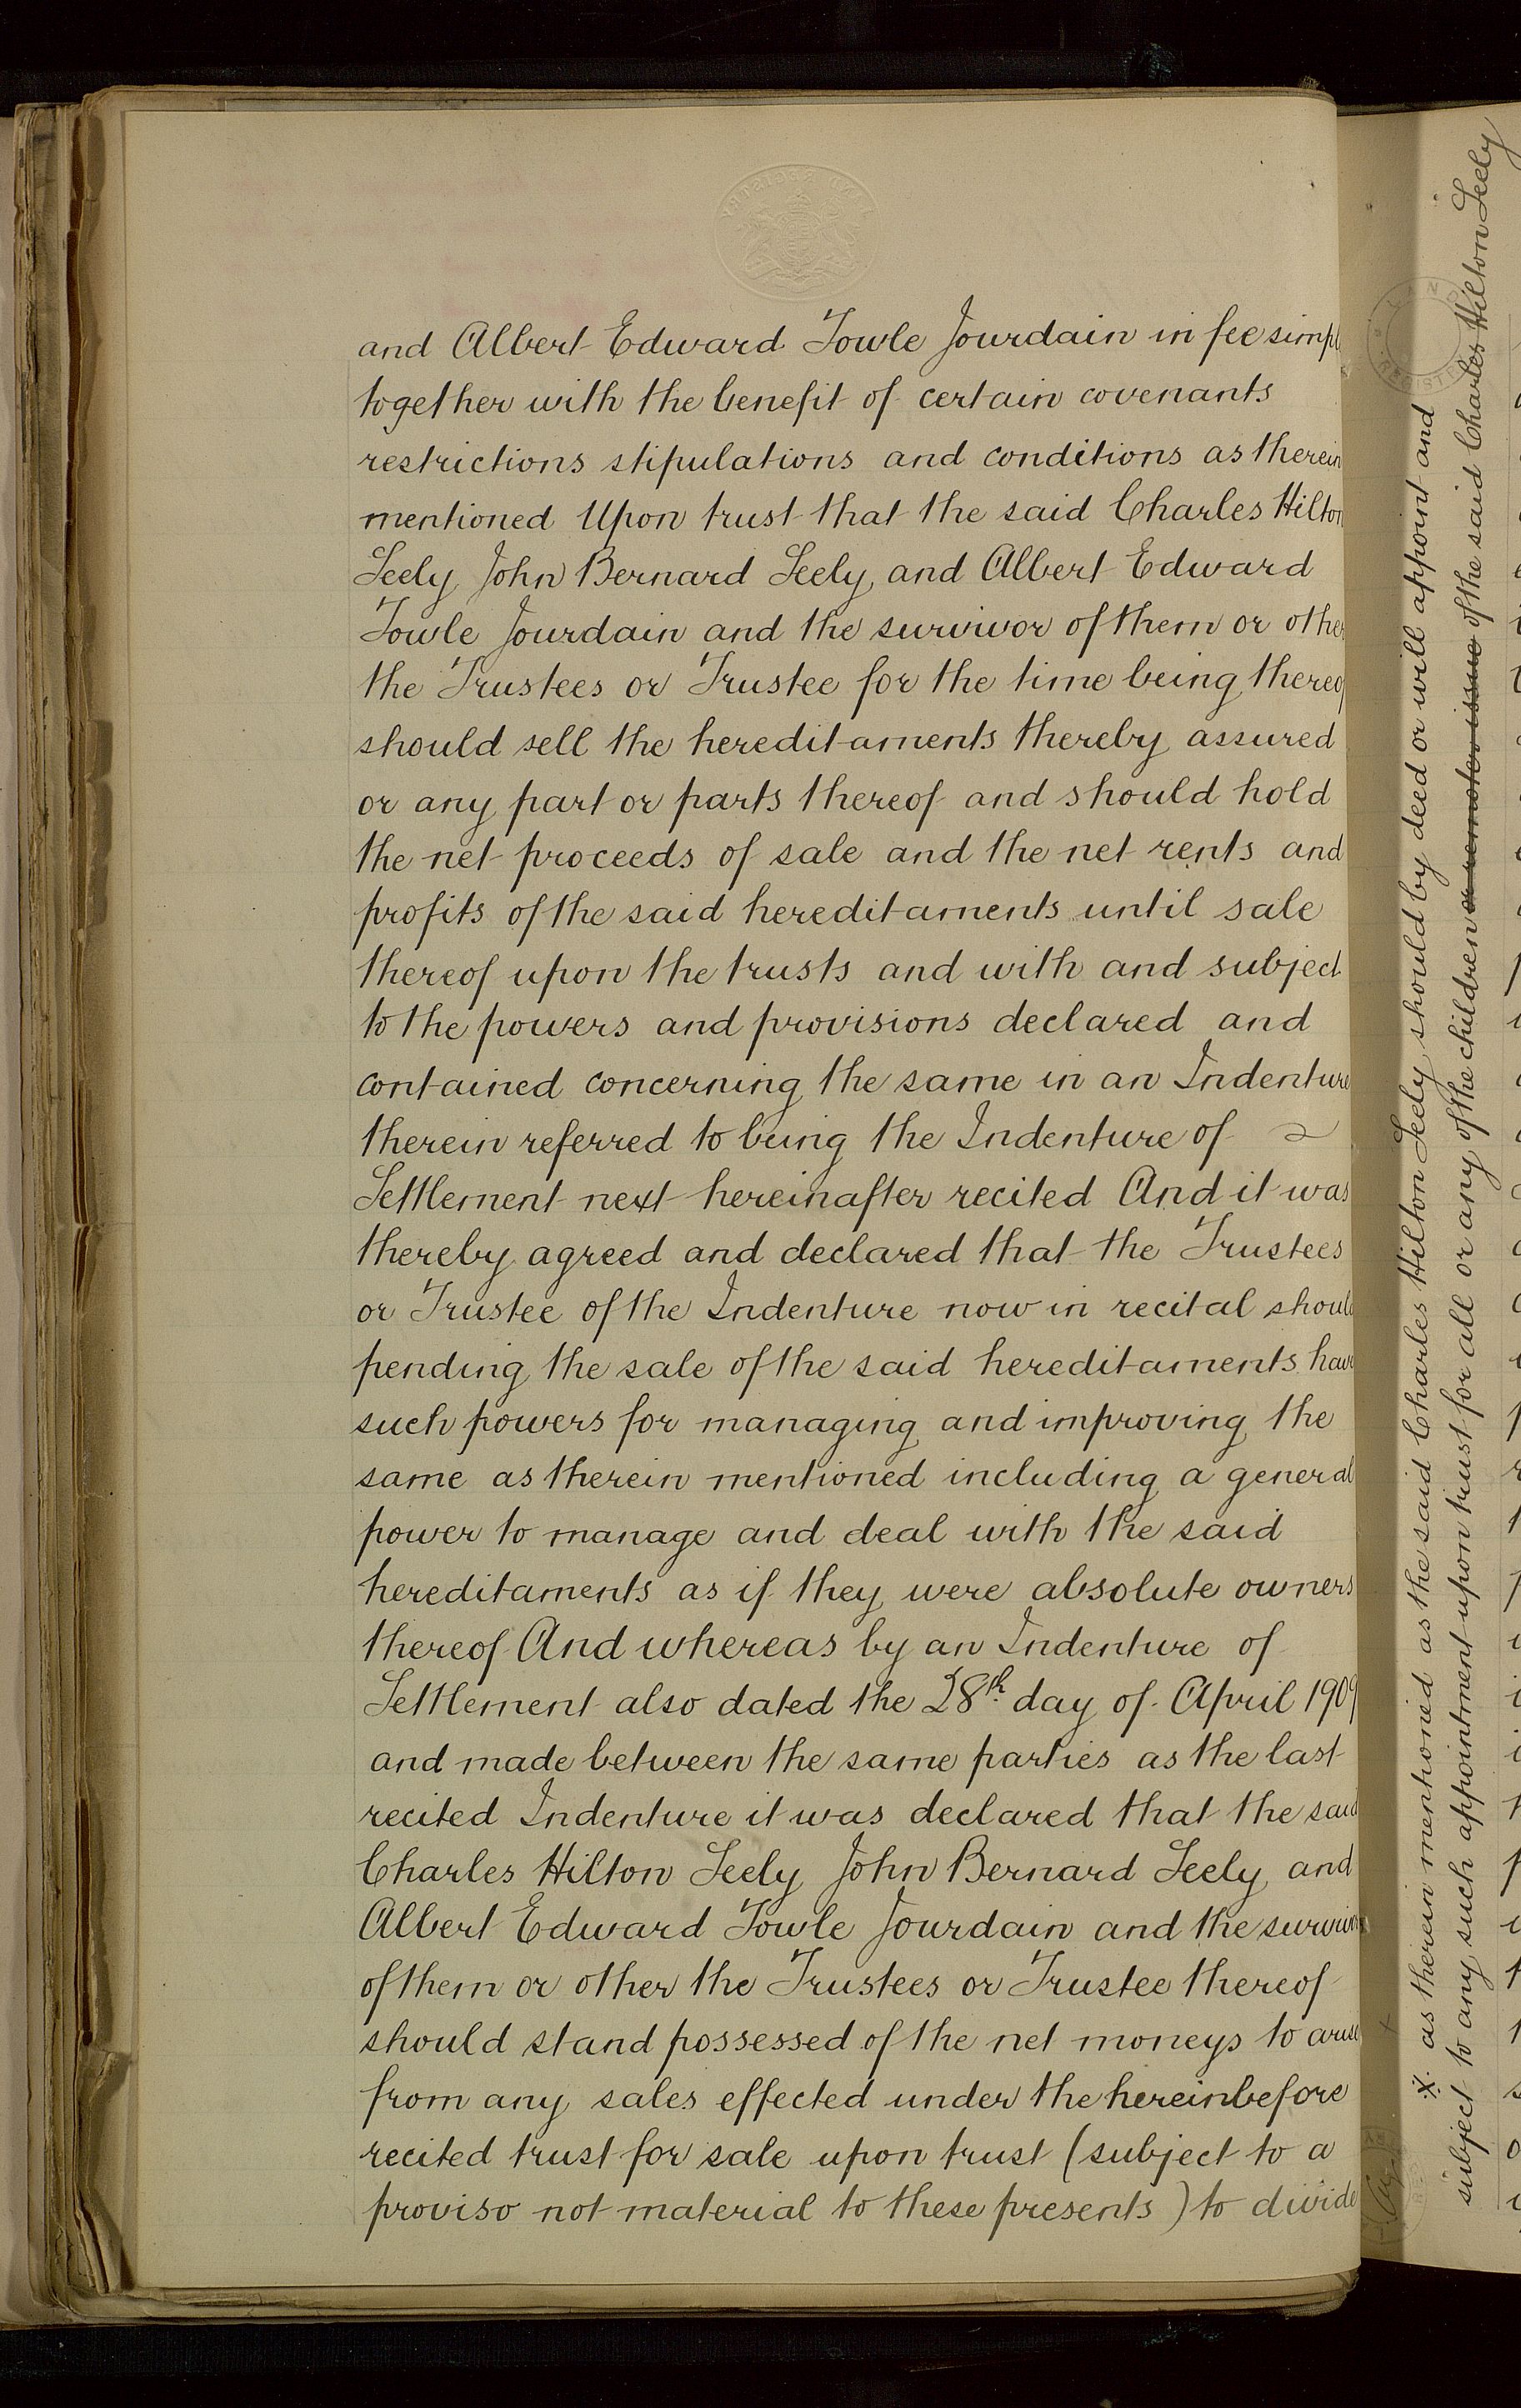 and Albert Edward Towle Jourdain in fee simpl
together with the benefit of certain covenants
restrictions stipulations and conditions as therein
mentioned Upon trust that the said Charles Hilton
Seely John Bernard Seely and Albert Edward
Towle Jourdain and the survivor of them or other
the Trustees or Trustee for the time being thereof
should sell the hereditaments thereby assured
or any part or parts thereof and should hold
the net proceeds of sale and the net rents and
profits of the said hereditaments until sale
thereof upon the trusts and with and subject
to the powers and provisions declared and
contained concerning the same in an Indenture
therein referred to being the Indenture of
Settlement next hereinafter recited And it was
thereby agreed and declared that the Trustees
or Trustee of the Indenture now in recital should
pending the sale of the said hereditaments have
such powers for managing and improving the
same as therein mentioned including a general
power to manage and deal with the said
hereditaments as if they were absolute owners
thereof And whereas by an Indenture of
Settlement also dated the 28th day of April 1909
and made between the same parties as the last
recited Indenture it was declared that the said
Charles Hilton Seely John Bernard Seely and
Albert Edward Towle Jourdain and the survivor
of them or other the Trustees or Trustee thereof
should stand possessed of the net moneys to arise
from any sales effected under the hereinbefore
recited trust for sale upon trust (subject to a
proviso not material to these presents) to divide
as therein mentioned as the said Charles Hilton Seely should by deed or will appoint and
subject to any such appointment upon trust for all or any of the children or remoter issue of the said Charles Hilton Seely